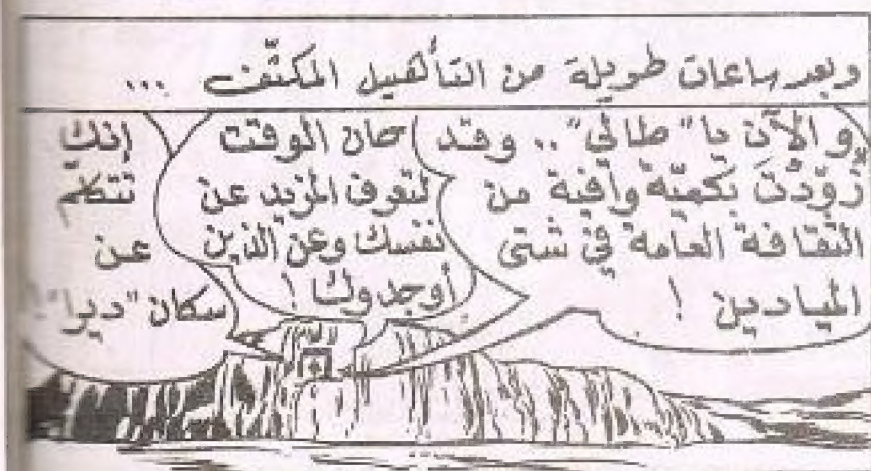 وبعد ساعات طويلة من التأهيل المكثّف ...
و الآن يا "طالي".. وقد
زُوّدْتَ بكميّة وافية من
الثقافة العامة في شتى
الميادين !
حان الوقت
لتعرف المزيد عن
نفسك وعن الذين
أوجدوك !
إنك
تتكلم
عن
سكان "ديرا"!